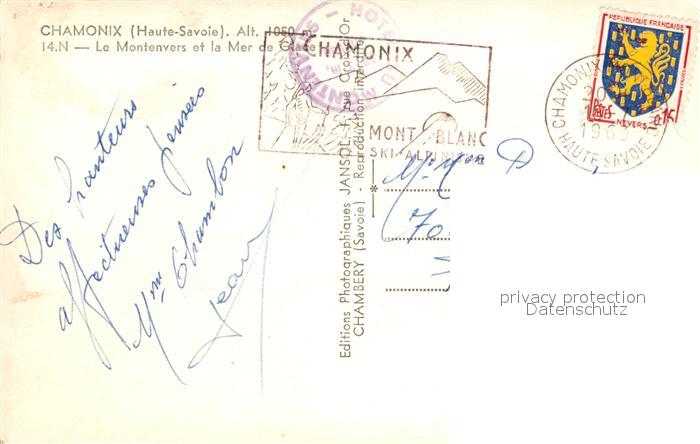 CHAMONIX (Haute-Savoie). Alt. 1050 m
14.N — Le Montenvers et la Mer de Glace
CHAMONIX
MONT BLANC
SKI-ALPINISME
HOTEL
REPUBLIQUE FRANCAISE
POSTES
0,15
NEVERS
CHAMONIX
HAUTE SAVOIE
Editions Photographiques JANSOL,
CHAMBERY (Savoie) - Reproduction interdite
Des hauteurs
affectueuses pensées
Mme Chambon
Jean
privacy protection
Datenschutz